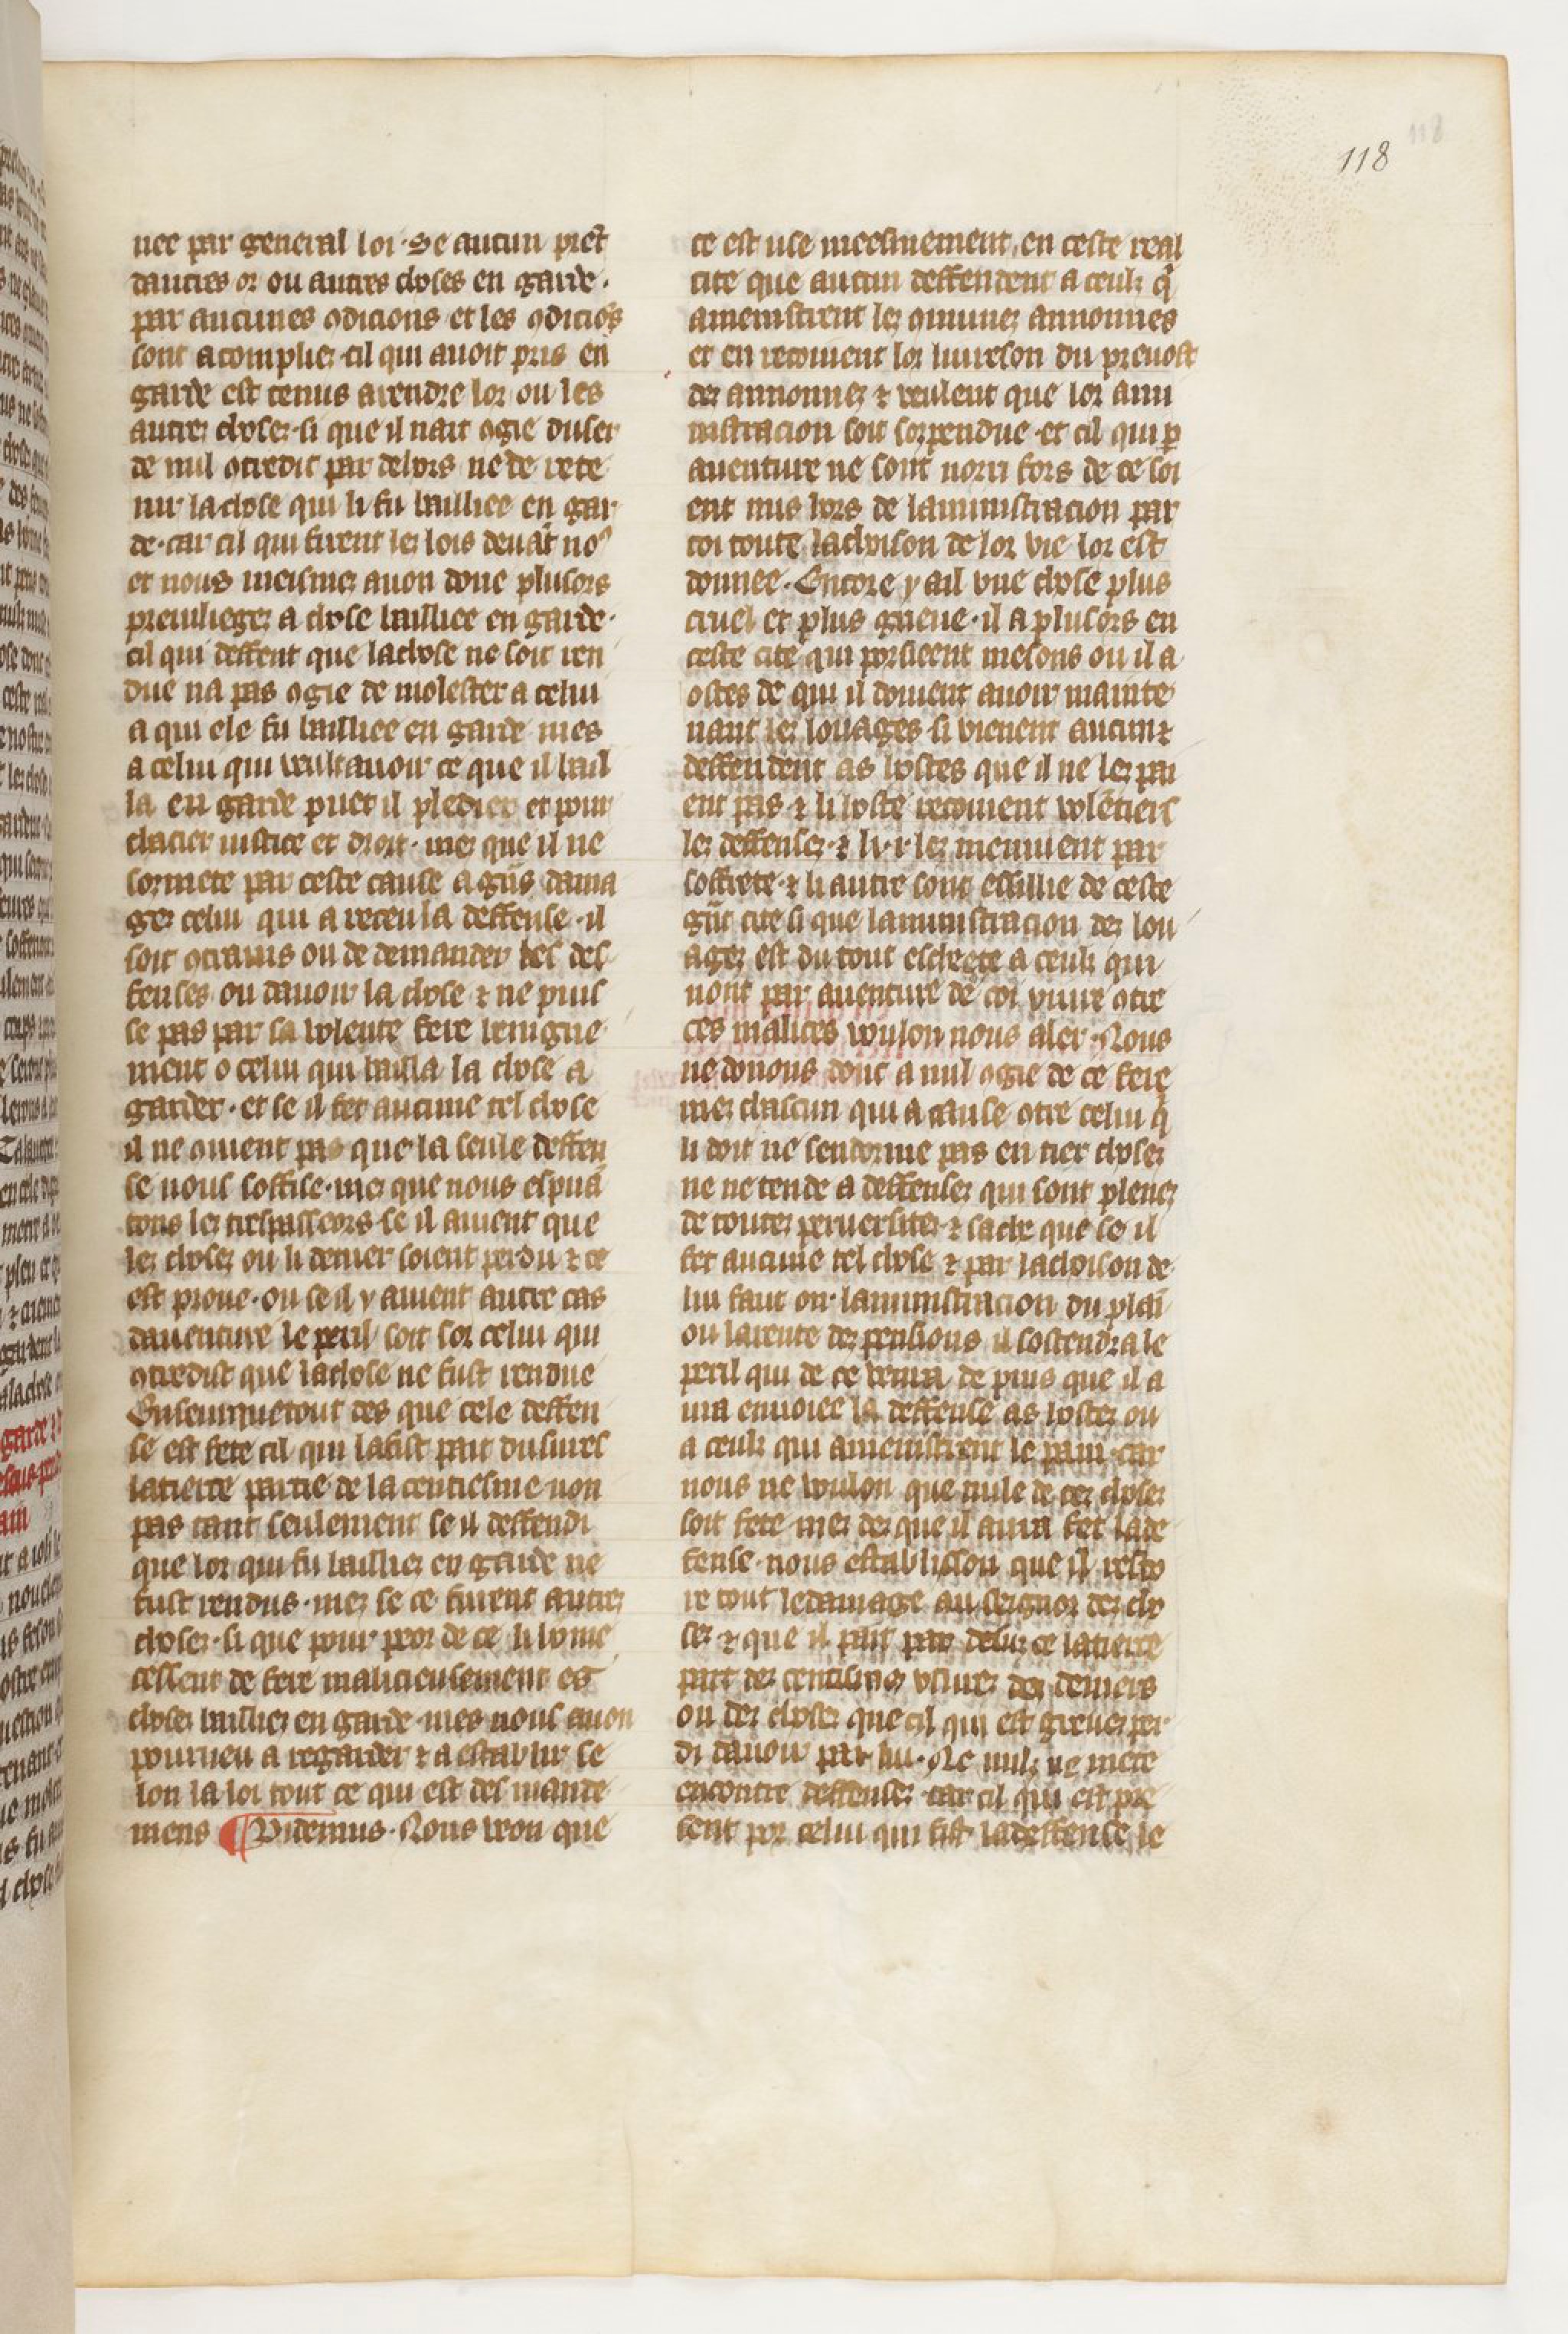 118
nee par general loi · Se aucun prest
dautres or ou autres choses en garde ·
par aucunes ꝯdicions et les ꝯdiciõs
sont acomplies · cil qui auoit pris en
garde est tenus a rendre lor ou les
autres choses · si que il nait ꝯgie duser
de nul ꝯtredit par dehors ne de rete
nir la chose qui li fu bailliee en gar
de · car cil qui firent les lois deuãt noꝰ
et nous meismes auon done plusors
preuilieges a chose bailliee en garde ·
cil qui deffent que la chose ne soit ren
due na pas ꝯgie de molester a celui
a qui ele fu bailliee en garde mes
a celui qui veult auoir ce que il bail
la en garde puet il pledier et pour
chacier iustice et droit · mes que il ne
sormete par ceste cause a gñs dama
ges celui qui a receu la deffense · il
soit ꝯtrains ou de demander les def
fenses ou dauoir la chose ⁊ ne puis
se pas par sa volente fere benigne
ment o celui qui bailla la chose a
garder · et se il fet aucune tel chose
il ne ꝯuient pas que la seule deffen
se nous soffise · mes que nous espuã
tons les trespasseors · se il auient que
les choses ou li denier soient perdu ⁊ ce
est proue · ou se il y auient autre cas
dauenture le peril soit sor celui qui
ꝯtredist que la chose ne fust rendue
Enseurquetout des que cele deffen
se est fete cil qui la fist pait dusures
la tierce partie de la centiesme non
pas tant seulement se il deffendi
que lor qui fu bailliez en garde ne
fust rendus · mes se ce furent autres
choses · si que pour peor de ce li home
cessent de fere malicieusement es
choses baillies en garde · mes nous auon
pourueu a regarder ⁊ a establir se
lon la loi tout ce qui est des mande
mens ¶ Videmus · Nous veon que
ce est use meesmement en ceste real
cite que aucun deffendent a ceulz q̃
amenistrent les ꝯmunes annonnes
et en recoiuent lor liureson du preuost
des annonnes ⁊ veulent que lor ami
nistracion soit sorpendue · et cil qui ꝑ
auenture ne sont norri fors de ce soi
ent mis hors de laministracion par
coi toute lachoison de lor vie lor est
donnee · Encore y a il vne chose plus
cruel et plus grieue · il a plusors en
ceste cite qui porsieent mesons ou il a
ostes de qui il doiuent auoir mainte
nant les louages · si vienent aucun ⁊
deffendent as hostes que il ne les pai
ent pas ⁊ li hoste recoiuent volẽtiers
les deffenses · ⁊ li · i · les menuient par
soffrete · ⁊ li autre sont essillie de ceste
gñt cite si que laministracion des lou
ages est du tout escheete a ceulz qui
nont par auenture de coi viure ꝯtre
ces malices voulon nous aler · Nous
ne donons dont a nul ꝯgie de ce fere
mes chascun qui a cause ꝯtre celui q̃
li doit ne sendorme pas en tier choses
ne ne tende a deffenses qui sont plenes
de toutes peruersites · ⁊ sache que se il
fet aucune tel chose ⁊ par lachoison de
lui faut on laministracion du plai
ou la rente des pensions il sostendra le
peril qui de ce venra de puis que il a
ura enuoiee la deffense as hostes ou
a ceulz qui amenistrent le pain · car
nous ne voulon que nule de ces choses
soit fete · mes des que il aura fet la de
fense · nous establisson que il resto
re tout le damage au seignor des cho
ses ⁊ que il pait par desus ce la tierce
part des centismes vsures des deniers
ou des choses que cil qui est greuez per
di dauoir par lui · Ne nulz ne mete
encontre deffenses · car cil qui est pre
sent por celui qui fist la deffense le